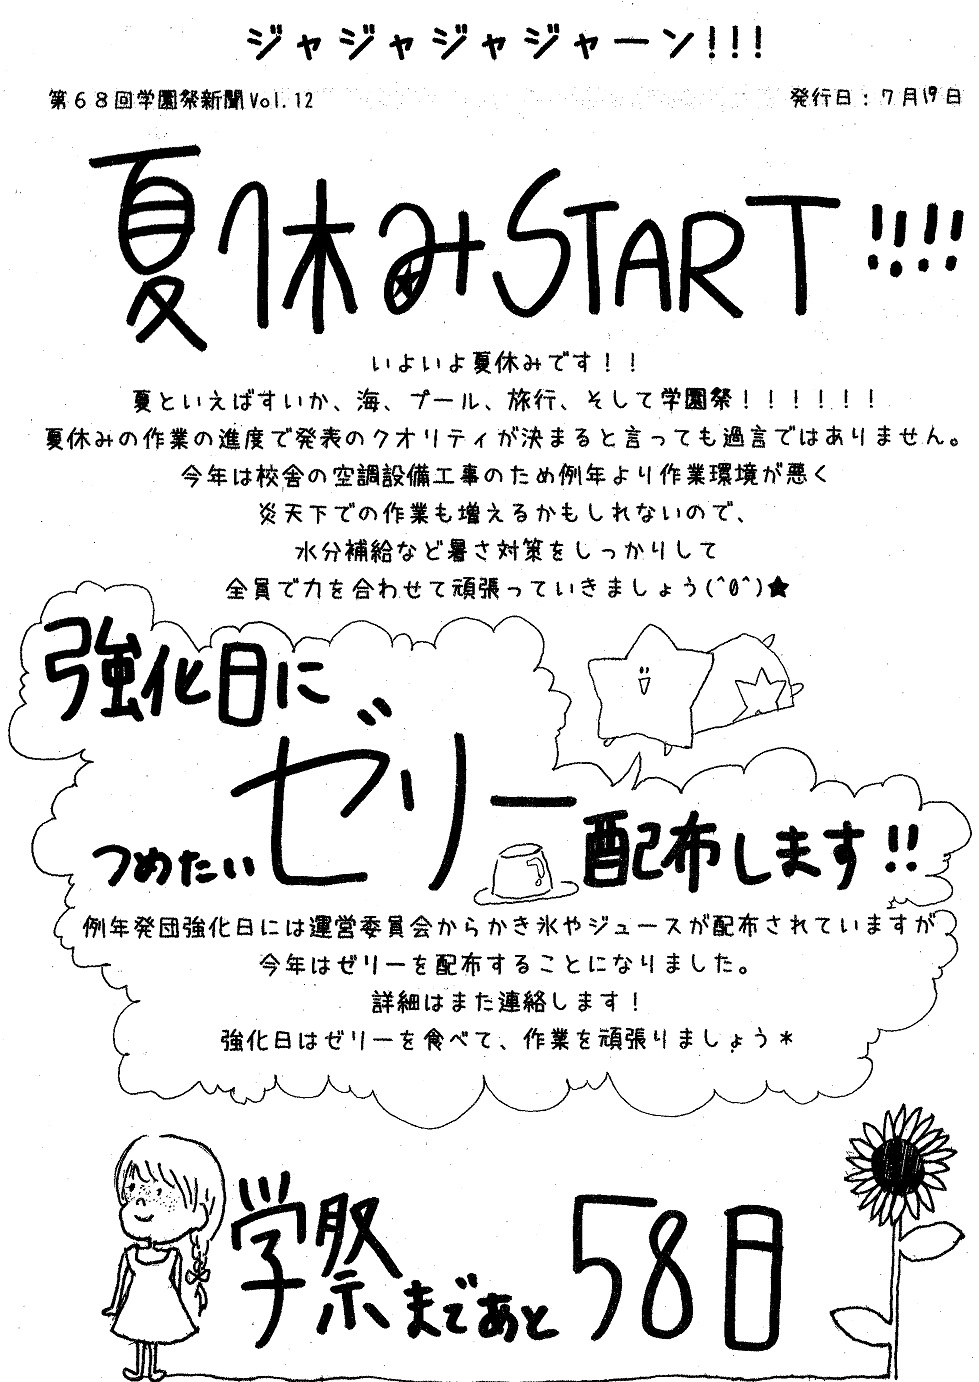 ジャジャジャジャーン!!!
第68回学園祭新聞Vol.12
発行日:7月19日
夏休みSTART!!!!
いよいよ夏休みです!!
夏といえばすいか、海、プール、旅行、そして学園祭!!!!!!
夏休みの作業の進度で発表のクオリティが決まると言っても過言ではありません。
今年は校舎の空調設備工事のため例年より作業環境が悪く
炎天下での作業も増えるかもしれないので、
水分補給など暑さ対策をしっかりして
全員で力を合わせて頑張っていきましょう(^0^)★
強化日に
つめたいゼリー配布します!!
例年発団強化日には運営委員会からかき氷やジュースが配布されていますが
今年はゼリーを配布することになりました。
詳細はまた連絡します!
強化日はゼリーを食べて、作業を頑張りましょう*
学祭まであと58日